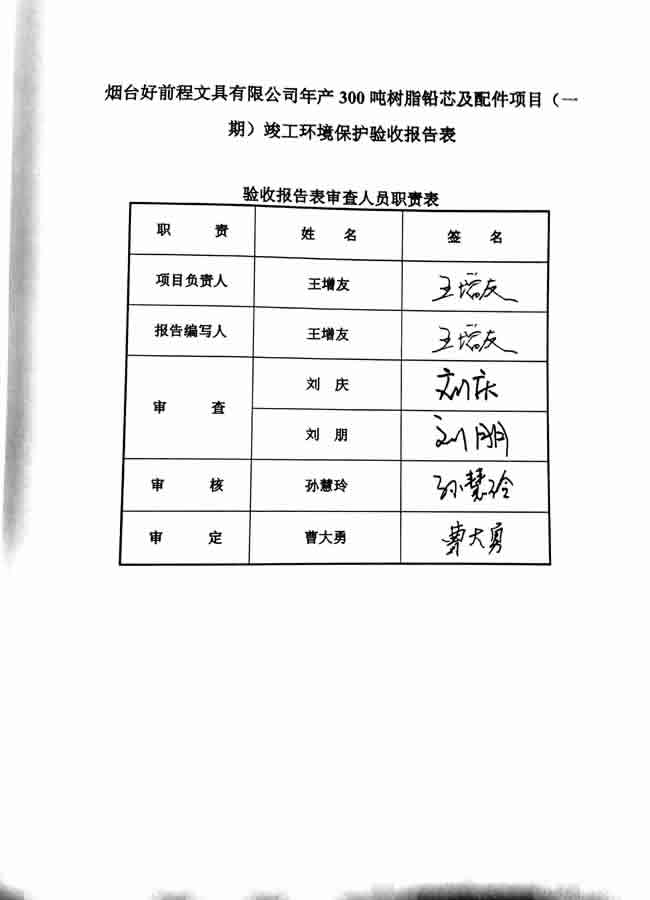 烟台好前程文具有限公司年产 300 吨树脂铅芯及配件项目（一
期）竣工环境保护验收报告表
验收报告表审查人员职责表
职 责 姓 名 签 名
项目负责人 王增友 王增友
报告编写人 王增友 王增友
审 查 刘 庆 刘庆
刘 朋 刘朋
审 核 孙慧玲 孙慧玲
审 定 曹大勇 曹大勇